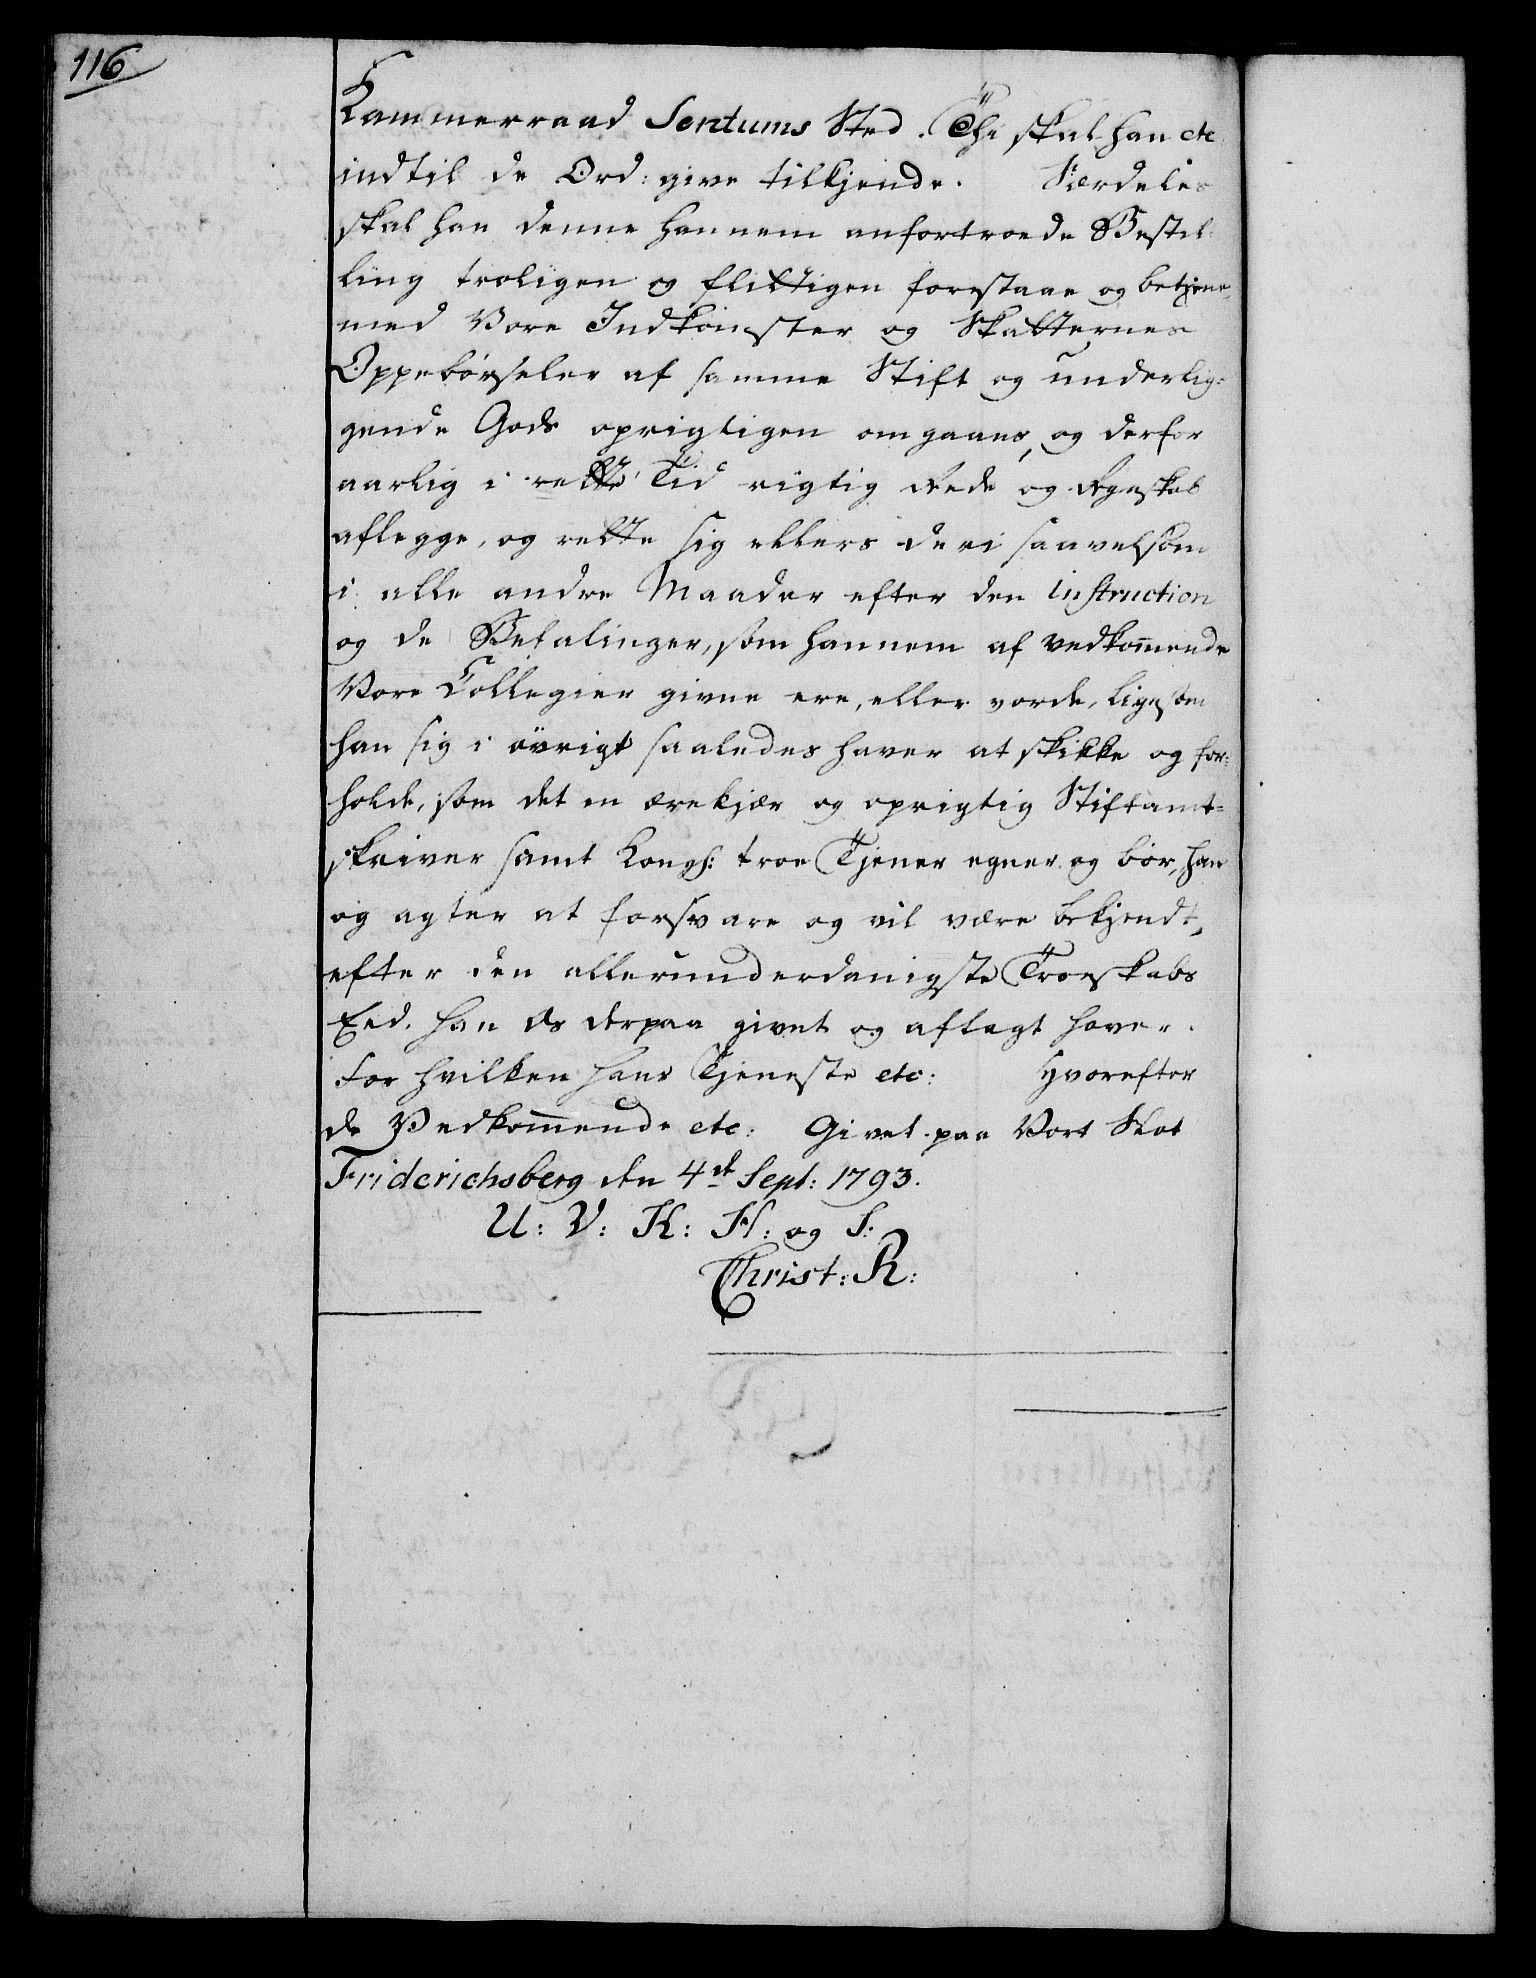 116
Kammerraad Sentums Sted. Thi skal han etc
indtil de Ord: give tilkjende. Særdeles
skal han denne hannem anfortroede Bestil-
ling troligen og flittigen forestaae og betjene,
med Vore Indkomster og Skatternes
Oppebørseler af samme Stift og underlig-
gende Gods oprigtigen omgaaes, og derfor
aarlig i rette Tid rigtig Rede og Regnskab
aflegge, og rette sig ellers deri saavelsom
i alle andre Maader efter den instruction
og de Befalinger, som hannem af vedkom̅ende
Vore Collegier givne ere, eller vorde, ligesom
han sig i øvrigt saaledes haver at skikke og for-
holde, som det en ærekjær og oprigtig Stiftamt-
skriver samt Kongl: troe Tjener egner og bør, han
og agter at forsvare og vil være bekjendt,
efter den allerunderdanigste Troeskabs
Eed. han Os derpaa givet og aflagt haver.
for hvilken hans Tjeneste etc: Hvorefter
de Vedkom̅ende etc: Givet paa Vort Slot
Friderichsberg den 4de Sept: 1793.
U: V: K: H: og S:
Christ: R: